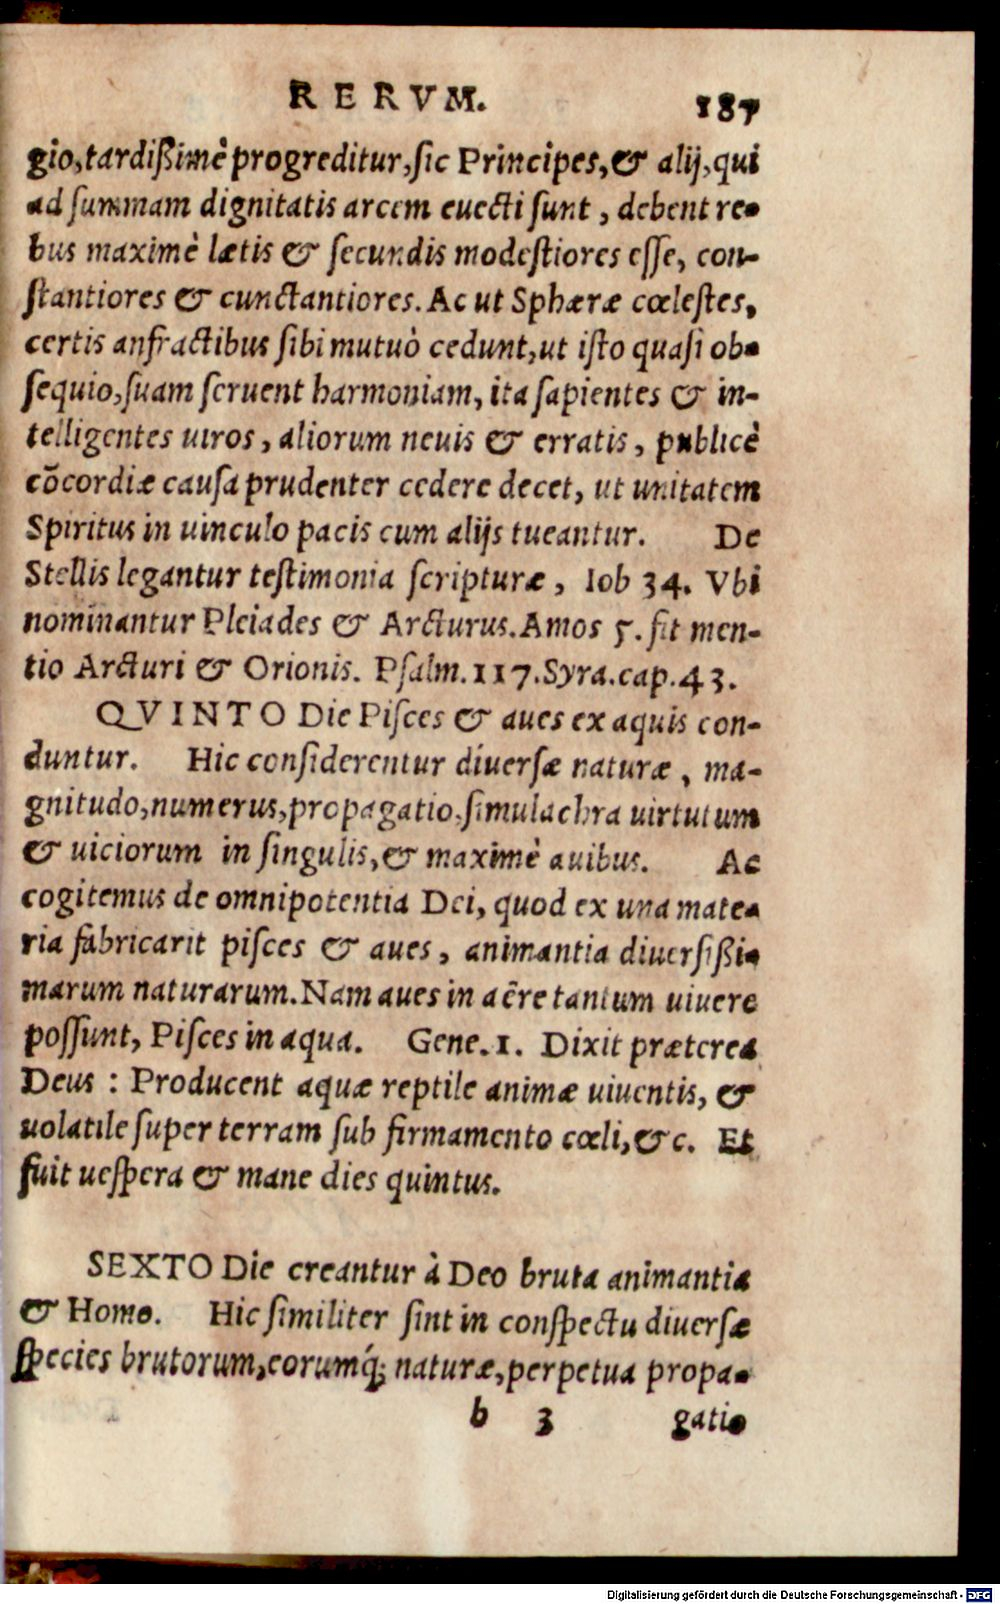 RERVM. 187
gio,tardißimè progreditur,ſic Principes,& alij,qui
ad ſummam dignitatis arcem euecti ſunt, debent re-
bus maximè lætis & ſecundis modeſtiores eſſe, con-
ſtantiores & cunctantiores. Ac ut Sphæræ cœleſtes,
certis anfractibus ſibi mutuò cedunt,ut iſto quaſi ob-
ſequio,ſuam ſeruent harmoniam, ita ſapientes & in-
telligentes uiros, aliorum neuis & erratis, publicè
cõcordiæ cauſa prudenter cedere decet, ut unitatem
Spiritus in uinculo pacis cum alijs tueantur. De
Stellis legantur teſtimonia ſcripturæ, Iob 34. Vbi
nominantur Pleiades & Arcturus. Amos 5. fit men-
tio Arcturi & Orionis. Pſalm.117.Syra.cap.43.
QVINTO Die Piſces & aues ex aquis con-
duntur. Hic conſiderentur diuerſæ naturæ, ma-
gnitudo,numerus,propagatio,ſimulachra uirtutum
& uiciorum in ſingulis,& maximè auibus. Ac
cogitemus de omnipotentia Dei, quod ex una mate-
ria fabricarit piſces & aues, animantia diuerſißi-
marum naturarum. Nam aues in aëre tantum uiuere
poſſunt, Piſces in aqua. Gene.1. Dixit præterea
Deus : Producent aquæ reptile animæ uiuentis, &
uolatile ſuper terram ſub firmamento cœli,&c. Et
fuit ueſpera & mane dies quintus.
SEXTO Die creantur à Deo bruta animantia
& Homo. Hic ſimiliter ſint in conſpectu diuerſæ
ſpecies brutorum,eorumq́; naturæ,perpetua propa-
b 3 gatio
Digitalisierung gefördert durch die Deutsche Forschungsgemeinschaft - DFG